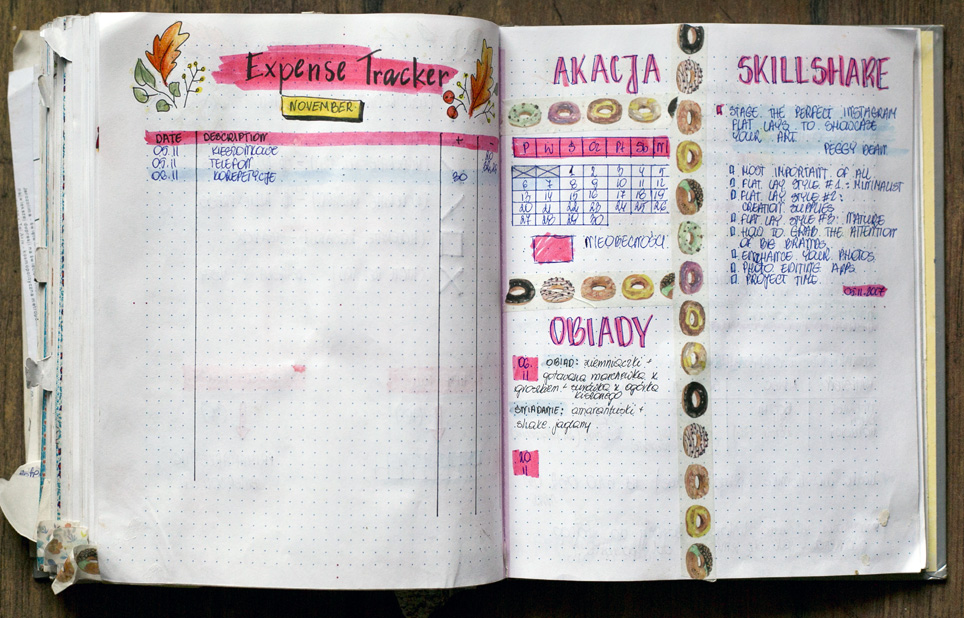 Expense Tracker
NOVEMBER
DATE DESCRIPTION +
05.11 KIESZONKOWE
05.11 TELEFON
08.11 KOREPETYCJE 80
AKACJA
P W Ś Cz Pt Sb N
1 2 3 4 5
6 7 8 9 10 11 12
13 14 15 16 17 18 19
20 21 22 23 24 25 26
27 28 29 30
NIEOBECNOŚCI
OBIADY
06.11 OBIAD: ziemniaczki +
gotowana marchewka z
groszkiem + surówka z ogórka
kiszonego
ŚNIADANIE: amarantuski +
shake jaglany
20.11
SKILLSHARE
STAGE THE PERFECT INSTAGRAM
FLAT LAYS TO SHOWCASE
YOUR ART
PEGGY DEAN
MOST IMPORTANT OF ALL
FLAT LAY STYLE #1: MINIMALIST
FLAT LAY STYLE #2:
CREATION SUPPLIES
FLAT LAY STYLE #3: NATURE
HOW TO GRAB THE ATTENTION
OF BIG BRANDS
ENHANCE YOUR PHOTOS
PHOTO EDITING APPS
PROJECT TIME
05.11.2017